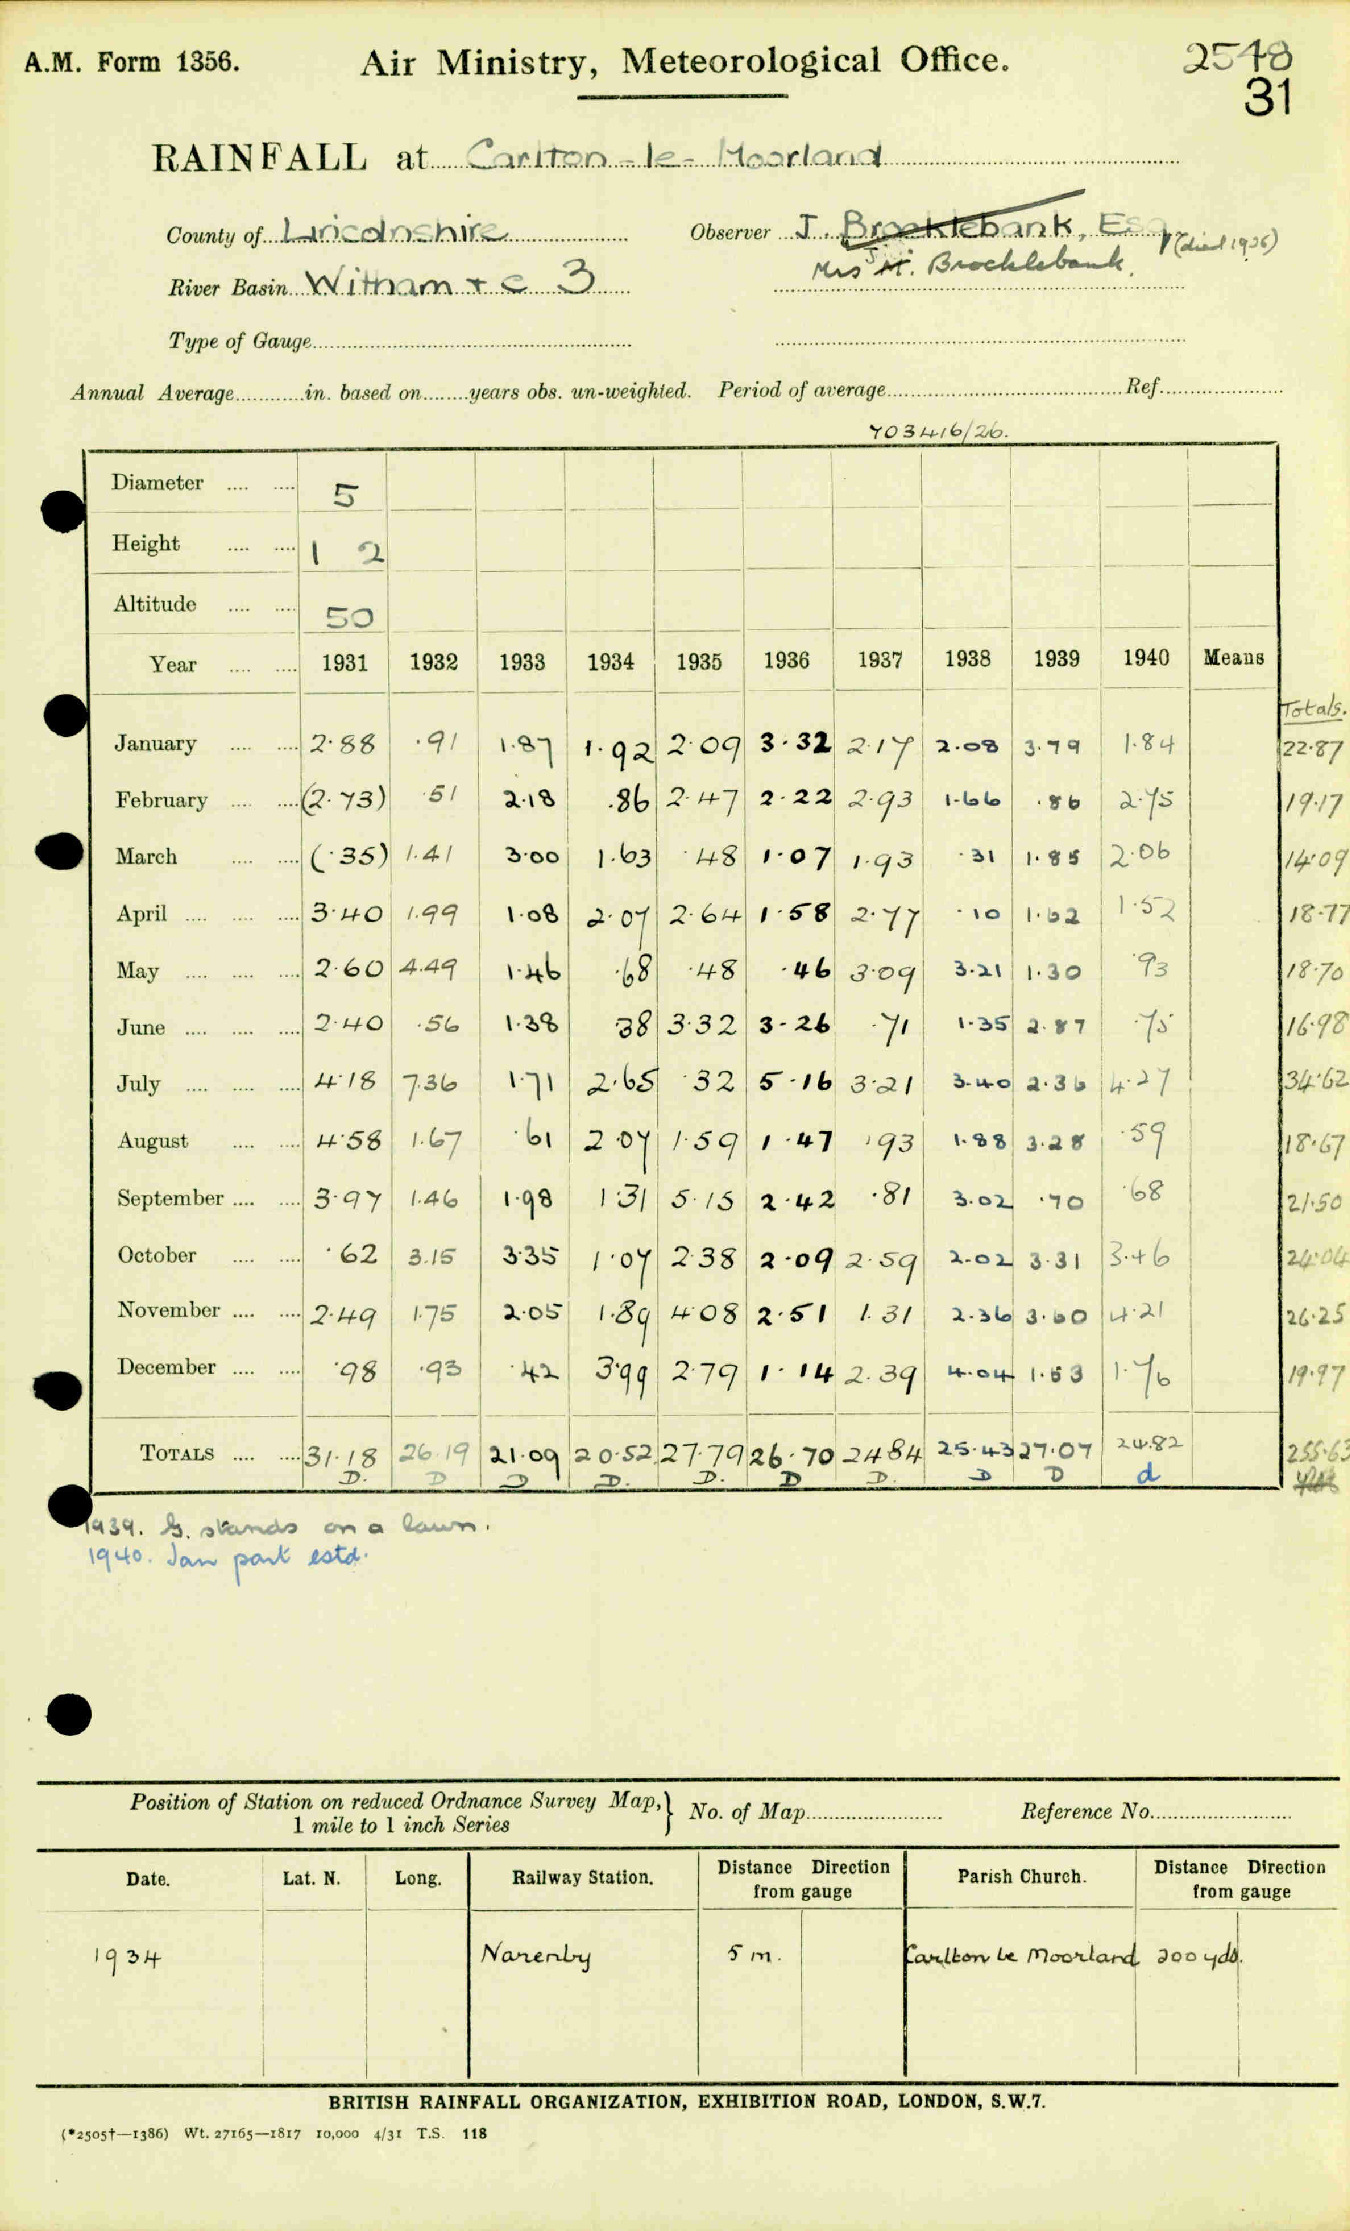 A.M. Form 1356. Air Ministry, Meteorological Office. 2548
31
RAINFALL at Carlton-le-Moorland
County of Lincolnshire Observer J. Brocklebank, Esq. (died 1936)
Mrs J. M. Brocklebank.
River Basin Witham + c 3
Type of Gauge
Annual Average in. based on years obs. un-weighted. Period of average Ref.
703416/26.
Diameter 5
Height 1 2
Altitude 50
Year 1931 1932 1933 1934 1935 1936 1937 1938 1939 1940 Means
Totals.
January 2.88 .91 1.87 1.92 2.09 3.32 2.17 2.08 3.79 1.84 22.87
February (2.73) .51 2.18 .86 2.47 2.22 2.93 1.66 .86 2.75 19.17
March (.35) 1.41 3.00 1.63 .48 1.07 1.93 .31 1.85 2.06 14.09
April 3.40 1.99 1.08 2.07 2.64 1.58 2.77 .10 1.62 1.52 18.77
May 2.60 4.49 1.46 .68 .48 .46 3.09 3.21 1.30 .93 18.70
June 2.40 .56 1.38 .38 3.32 3.26 .71 1.35 2.87 .75 16.98
July 4.18 7.36 1.71 2.65 .32 5.16 3.21 3.40 2.36 4.27 34.62
August 4.58 1.67 .61 2.07 1.59 1.47 .93 1.88 3.28 .59 18.67
September 3.97 1.46 1.98 1.31 5.15 2.42 .81 3.02 .70 .68 21.50
October .62 3.15 3.35 1.07 2.38 2.09 2.59 2.02 3.31 3.46 24.04
November 2.49 1.75 2.05 1.89 4.08 2.51 1.31 2.36 3.60 4.21 26.25
December .98 .93 .42 3.99 2.79 1.14 2.39 4.04 1.53 1.76 19.97
TOTALS 31.18 26.19 21.09 20.52 27.79 26.70 24.84 25.43 27.07 24.82 255.63
D. D D D. D. D D. D D d
1939. G. stands on a lawn.
1940. Jan part estd.
Position of Station on reduced Ordnance Survey Map, } No. of Map Reference No.
1 mile to 1 inch Series
Date. Lat. N. Long. Railway Station. Distance Direction from gauge Parish Church. Distance Direction from gauge
1934 Navenby 5 m. Carlton le Moorland 200 yds.
BRITISH RAINFALL ORGANIZATION, EXHIBITION ROAD, LONDON, S.W.7.
(*2505†—1386) Wt. 27165—1817 10,000 4/31 T.S. 118